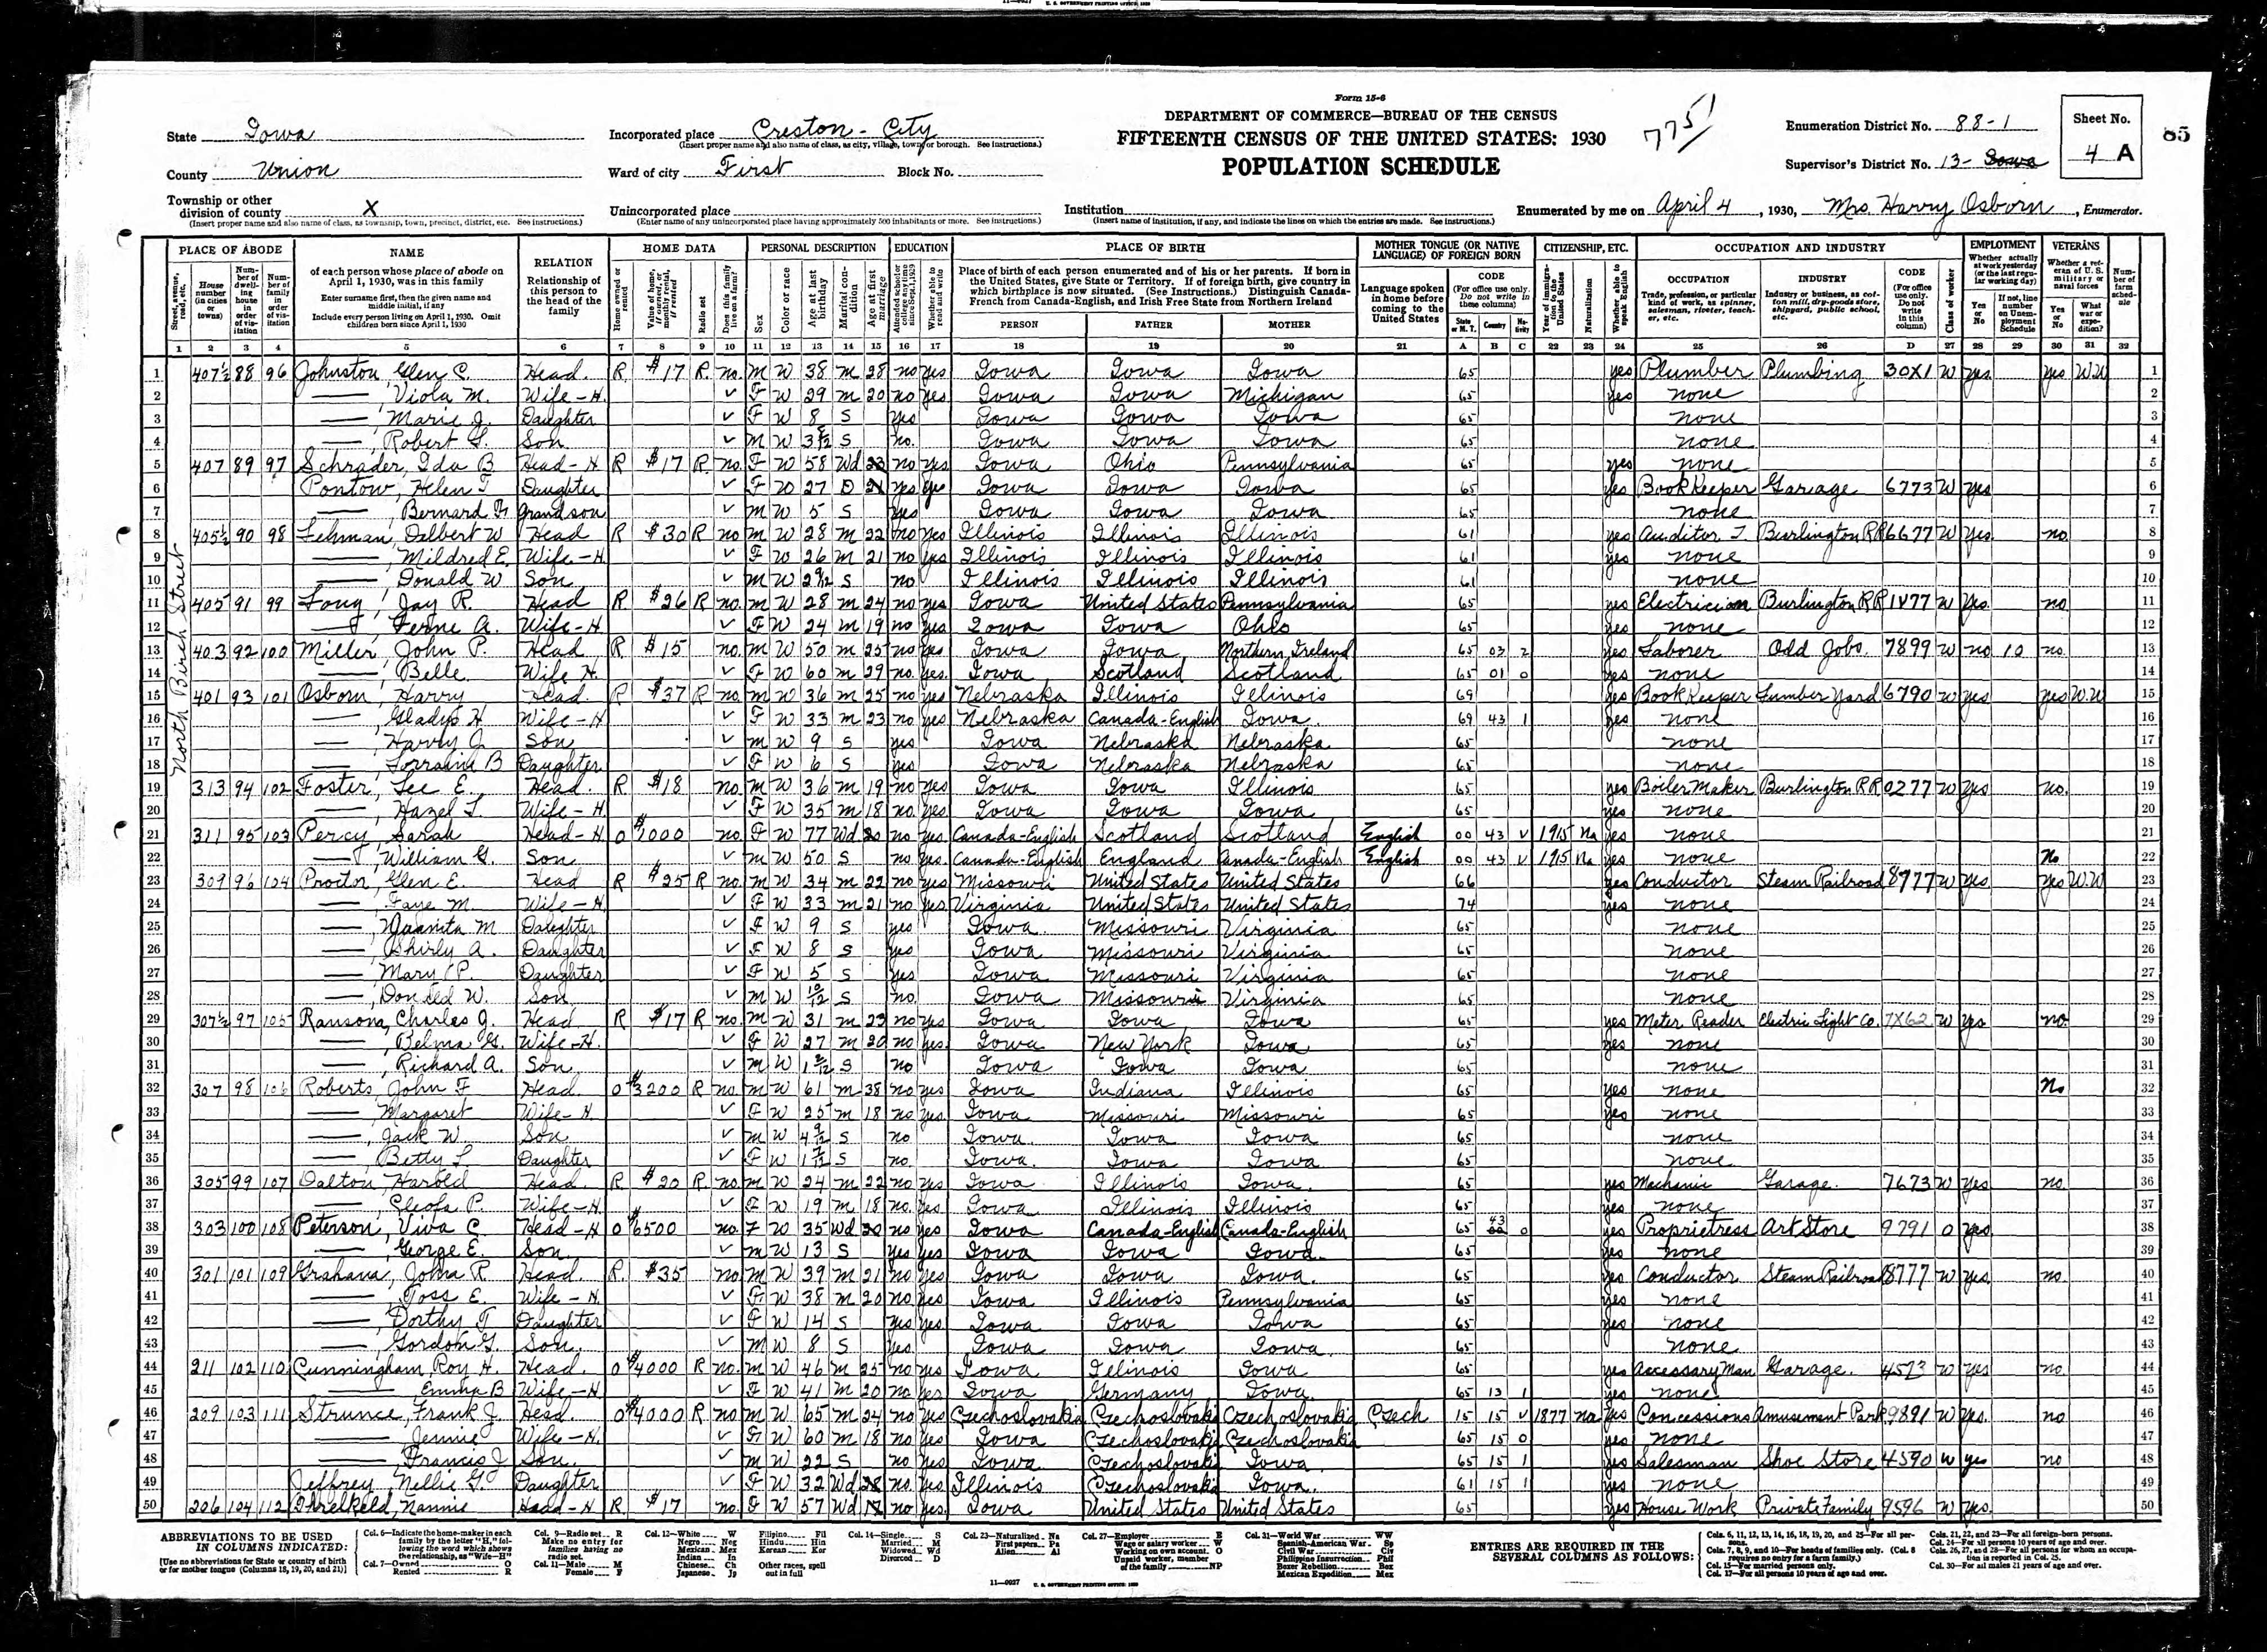 11—0027 U. S. GOVERNMENT PRINTING OFFICE: 1929
Form 15-6
DEPARTMENT OF COMMERCE—BUREAU OF THE CENSUS
FIFTEENTH CENSUS OF THE UNITED STATES: 1930
POPULATION SCHEDULE
775
State Iowa
County Union
Township or other division of county X
(Insert proper name and also name of class, as township, town, precinct, district, etc. See instructions.)
Incorporated place Creston - City
(Insert proper name and also name of class, as city, village, town, or borough. See instructions.)
Ward of city First Block No.
Unincorporated place
(Enter name of any unincorporated place having approximately 500 inhabitants or more. See instructions.)
Institution
(Insert name of institution, if any, and indicate the lines on which the entries are made. See instructions.)
Enumeration District No. 88-1
Supervisor's District No. 13- Iowa
Sheet No. 4 A
85
Enumerated by me on April 4, 1930, Mrs. Harry Osborn, Enumerator.
PLACE OF ABODE NAME RELATION HOME DATA PERSONAL DESCRIPTION EDUCATION PLACE OF BIRTH MOTHER TONGUE (OR NATIVE LANGUAGE) OF FOREIGN BORN CITIZENSHIP, ETC. OCCUPATION AND INDUSTRY EMPLOYMENT VETERANS
North Birch Street
1 407½ 88 96 Johnston, Glen C. Head R $17 R no M W 38 M 28 no yes Iowa Iowa Iowa 65 yes Plumber Plumbing 30X1 W yes yes WW 1
2 ——, Viola M. Wife-H ✓ F W 29 M 20 no yes Iowa Iowa Michigan 65 yes none 2
3 ——, Marie J. Daughter ✓ F W 8 S yes Iowa Iowa Iowa 65 none 3
4 ——, Robert G. Son ✓ M W S no Iowa Iowa Iowa 65 none 4
5 407 89 97 Schrader, Ida B Head-H R $17 R no F W 58 Wd no yes Iowa Ohio Pennsylvania 65 yes none 5
6 Pontow, Helen F Daughter ✓ F W 27 D 21 yes yes Iowa Iowa Iowa 65 yes BookKeeper Garage 6773 W yes 6
7 ——, Bernard Grandson ✓ M W 5 S yes Iowa Iowa Iowa 65 none 7
8 405½ 90 98 Lehman, Delbert W Head R $30 R no M W 28 M 22 no yes Illinois Illinois Illinois 61 yes Auditor T. Burlington RR 6677 W yes no 8
9 ——, Mildred E. Wife-H ✓ F W 26 M 21 no yes Illinois Illinois Illinois 61 yes none 9
10 ——, Donald W Son ✓ M W S no Illinois Illinois Illinois 61 none 10
11 405 91 99 Long, Jay R. Head R $26 R no M W 28 M 24 no yes Iowa United States Pennsylvania 65 yes Electrician Burlington RR 1V77 W yes no 11
12 ——, Ferne A. Wife-H ✓ F W 24 M 19 no yes Iowa Iowa Ohio 65 yes none 12
13 403 92 100 Miller, John P. Head R $15 no M W 50 M 25 no yes Iowa Iowa Northern Ireland 65 03 2 yes Laborer Odd Jobs 7899 W no 10 no 13
14 ——, Belle Wife H ✓ F W 60 M 29 no yes Iowa Scotland Scotland 65 01 0 yes none 14
15 401 93 101 Osborn, Harry Head R $37 R no M W 36 M 25 no yes Nebraska Illinois Illinois 69 yes BookKeeper Lumber Yard 6790 W yes yes W.W 15
16 ——, Gladys H Wife-H ✓ F W 33 M 23 no yes Nebraska Canada-English Iowa 69 43 1 yes none 16
17 ——, Harry J. Son ✓ M W 9 S yes Iowa Nebraska Nebraska 65 none 17
18 ——, Lorraine B Daughter ✓ F W 6 S yes Iowa Nebraska Nebraska 65 none 18
19 313 94 102 Foster, Lee E. Head R $18 no M W 36 M 19 no yes Iowa Iowa Illinois 65 yes Boiler Maker Burlington RR 0277 W yes no 19
20 ——, Hazel L. Wife-H ✓ F W 35 M 18 no yes Iowa Iowa Iowa 65 yes none 20
21 311 95 103 Percy, Sarah Head-H O $1000 no F W 77 Wd no yes Canada-English Scotland Scotland English 00 43 V 1915 Na yes none 21
22 ——, William G. Son ✓ M W 50 S no yes Canada-English England Canada-English English 00 43 V 1915 Na yes none No 22
23 309 96 104 Proctor, Glen E. Head R $25 R no M W 34 M 22 no yes Missouri United States United States 66 yes Conductor Steam Railroad 8777 W yes yes W.W 23
24 ——, Faye M. Wife-H ✓ F W 33 M 21 no yes Virginia United States United States 74 yes none 24
25 ——, Juanita M Daughter ✓ F W 9 S yes Iowa Missouri Virginia 65 none 25
26 ——, Shirly A. Daughter ✓ F W 8 S yes Iowa Missouri Virginia 65 none 26
27 ——, Mary P. Daughter ✓ F W 5 S yes Iowa Missouri Virginia 65 none 27
28 ——, Donald W. Son ✓ M W 10/12 S no Iowa Missouri Virginia 65 none 28
29 307½ 97 105 Ransona, Charles J. Head R $17 R no M W 31 M 23 no yes Iowa Iowa Iowa 65 yes Meter Reader Electric Light Co. 7X62 W yes no 29
30 ——, Belma G. Wife-H ✓ F W 27 M 20 no yes Iowa New York Iowa 65 yes none 30
31 ——, Richard A. Son ✓ M W S no Iowa Iowa Iowa 65 none 31
32 307 98 106 Roberts, John F Head O $3200 R no M W 61 M 38 no yes Iowa Indiana Illinois 65 yes none No 32
33 —— Margaret Wife-H ✓ F W 25 M 18 no yes Iowa Missouri Missouri 65 yes none 33
34 ——, Jack W. Son ✓ M W S no Iowa Iowa Iowa 65 none 34
35 ——, Betty L Daughter ✓ F W S no Iowa Iowa Iowa 65 none 35
36 305 99 107 Dalton, Harold Head R $20 R no M W 24 M 22 no yes Iowa Illinois Iowa 65 yes Mechanic Garage 7673 W yes no 36
37 ——, Cleofa P. Wife-H ✓ F W 19 M 18 no yes Iowa Illinois Illinois 65 yes none 37
38 303 100 108 Peterson, Viva C Head-H O $6500 no F W 35 Wd no yes Iowa Canada-English Canada-English 65 43 0 yes Proprietress Art Store 9791 O yes 38
39 ——, George E. Son ✓ M W 13 S yes yes Iowa Iowa Iowa 65 yes none 39
40 301 101 109 Grahana, John R. Head R $35 no M W 39 M 21 no yes Iowa Iowa Iowa 65 yes Conductor Steam Railroad 8777 W yes no 40
41 ——, Toss E. Wife-H ✓ F W 38 M 20 no yes Iowa Illinois Pennsylvania 65 yes none 41
42 ——, Dorthy T Daughter ✓ F W 14 S yes yes Iowa Iowa Iowa 65 yes none 42
43 ——, Gordon G. Son ✓ M W 8 S yes Iowa Iowa Iowa 65 none 43
44 211 102 110 Cunningham, Roy H. Head O $4000 R no M W 46 M 25 no yes Iowa Illinois Iowa 65 yes Accessary Man Garage 4573 W yes no 44
45 ——, Emma B Wife-H ✓ F W 41 M 20 no yes Iowa Germany Iowa 65 13 1 yes none 45
46 209 103 111 Strunce, Frank J. Head O $4000 R no M W 65 M 24 no yes Czechoslovakia Czechoslovakia Czechoslovakia Czech 15 15 V 1877 na yes Concessions Amusement Park 9891 W yes no 46
47 ——, Jennie Wife-H ✓ F W 60 M 18 no yes Iowa Czechoslovakia Czechoslovakia 65 15 0 yes none 47
48 ——, Francis J Son ✓ M W 22 S no yes Iowa Czechoslovakia Iowa 65 15 1 yes Salesman Shoe Store 4590 W yes no 48
49 Jeffrey, Nellie G. Daughter ✓ F W 32 Wd no yes Illinois Czechoslovakia Iowa 61 15 1 yes none 49
50 206 104 112 Threlkeld, Nannie Head-H R $17 no F W 57 Wd no yes Iowa United States United States 65 yes House Work Private Family 9596 W yes 50
ABBREVIATIONS TO BE USED IN COLUMNS INDICATED:
[Use no abbreviations for State or country of birth or for mother tongue (Columns 18, 19, 20, and 21)]
Col. 6—Indicate the home-maker in each family by the letter "H," following the word which shows the relationship, as "Wife—H"
Col. 7—Owned O Rented R
Col. 9—Radio set R Make no entry for families having no radio set.
Col. 11—Male M Female F
Col. 12—White W Negro Neg Mexican Mex Indian In Chinese Ch Japanese Jp Filipino Fil Hindu Hin Korean Kor Other races, spell out in full
Col. 14—Single S Married M Widowed Wd Divorced D
Col. 23—Naturalized Na First papers Pa Alien Al
Col. 27—Employer E Wage or salary worker W Working on own account O Unpaid worker, member of the family NP
Col. 31—World War WW Spanish-American War Sp Civil War Civ Philippine Insurrection Phil Boxer Rebellion Box Mexican Expedition Mex
ENTRIES ARE REQUIRED IN THE SEVERAL COLUMNS AS FOLLOWS:
Cols. 6, 11, 12, 13, 14, 16, 18, 19, 20, and 25—For all persons.
Cols. 7, 8, 9, and 10—For heads of families only. (Col. 8 requires no entry for a farm family.)
Col. 15—For married persons only.
Col. 17—For all persons 10 years of age and over.
Cols. 21, 22, and 23—For all foreign-born persons.
Col. 24—For all persons 10 years of age and over.
Cols. 26, 27, and 28—For all persons for whom an occupation is reported in Col. 25.
Col. 30—For all males 21 years of age and over.
11—0027 U. S. GOVERNMENT PRINTING OFFICE: 1929